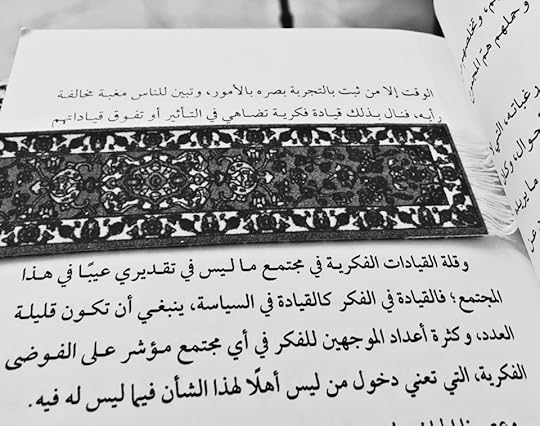 الوقت إلا من ثبت بالتجربة بصره بالأمور، وتبين للناس مغبة مخالفة
رأيه، فنال بذلك قيادة فكرية تضاهي في التأثير أو تفوق قياداتهم
وقلة القيادات الفكرية في مجتمع ما ليس في تقديري عيبًا في هذا
المجتمع؛ فالقيادة في الفكر كالقيادة في السياسة، ينبغي أن تكون قليلة
العدد، وكثرة أعداد الموجهين للفكر في أي مجتمع مؤشر على الفوضى
الفكرية، التي تعني دخول من ليس أهلًا لهذا الشأن فيما ليس له فيه.
وحملهم هم
رغباته، التي
ما يريد